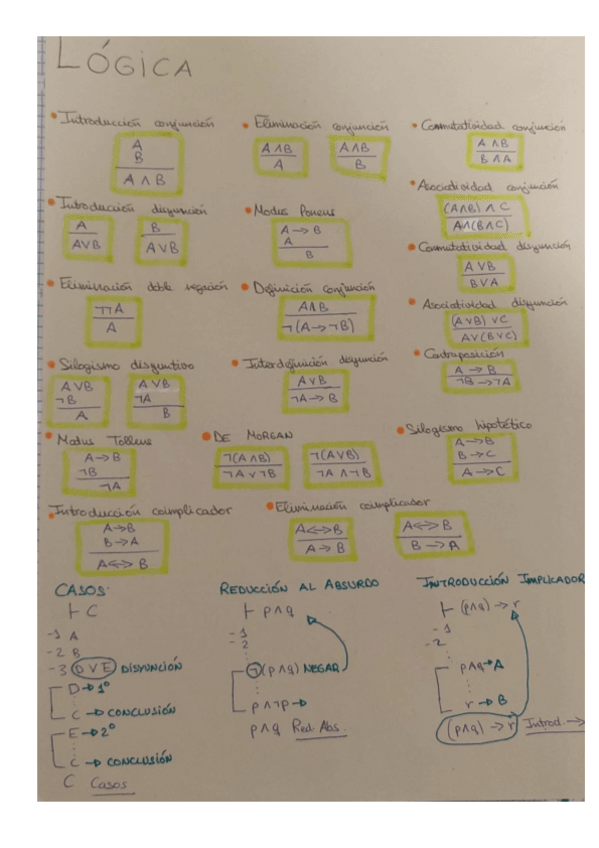 LÓGICA
• Introducción conjunción
A
B
A ∧ B
• Eliminación conjunción
A ∧ B
A
A ∧ B
B
• Conmutatividad conjunción
A ∧ B
B ∧ A
• Asociatividad conjunción
(A∧B) ∧ C
A∧(B∧C)
• Introducción disyunción
A
A∨B
B
A∨B
• Modus Ponens
A → B
A
B
• Conmutatividad disyunción
A ∨ B
B ∨ A
• Eliminación doble negación
¬¬A
A
• Definición conjunción
A∧B
¬(A→¬B)
• Asociatividad disyunción
(A∨B) ∨C
A∨(B∨C)
• Silogismo disyuntivo
A∨B
¬B
A
A∨B
¬A
B
• Interdefinición disyunción
A∨B
¬A→B
• Contraposición
A → B
¬B →¬A
• Modus Tollens
A→B
¬B
¬A
• DE MORGAN
¬(A∧B)
¬A∨¬B
¬(A∨B)
¬A∧¬B
• Silogismo hipotético
A→B
B→C
A→C
• Introducción coimplicador
A→B
B→A
A↔B
• Eliminación coimplicador
A↔B
A→B
A↔B
B→A
CASOS:
⊢ C
-1 A
-2 B
-3 D∨E DISYUNCIÓN
D→1º
⋮
C → CONCLUSIÓN
E→2º
⋮
C → CONCLUSIÓN
C Casos
REDUCCIÓN AL ABSURDO
⊢ p∧q
-1
-2
⋮
¬(p∧q) NEGAR
⋮
p∧¬p→
p∧q Red. Abs.
INTRODUCCIÓN IMPLICADOR
⊢ (p∧q)→r
-1
-2
⋮
p∧q→A
⋮
r→B
(p∧q)→r Introd.→